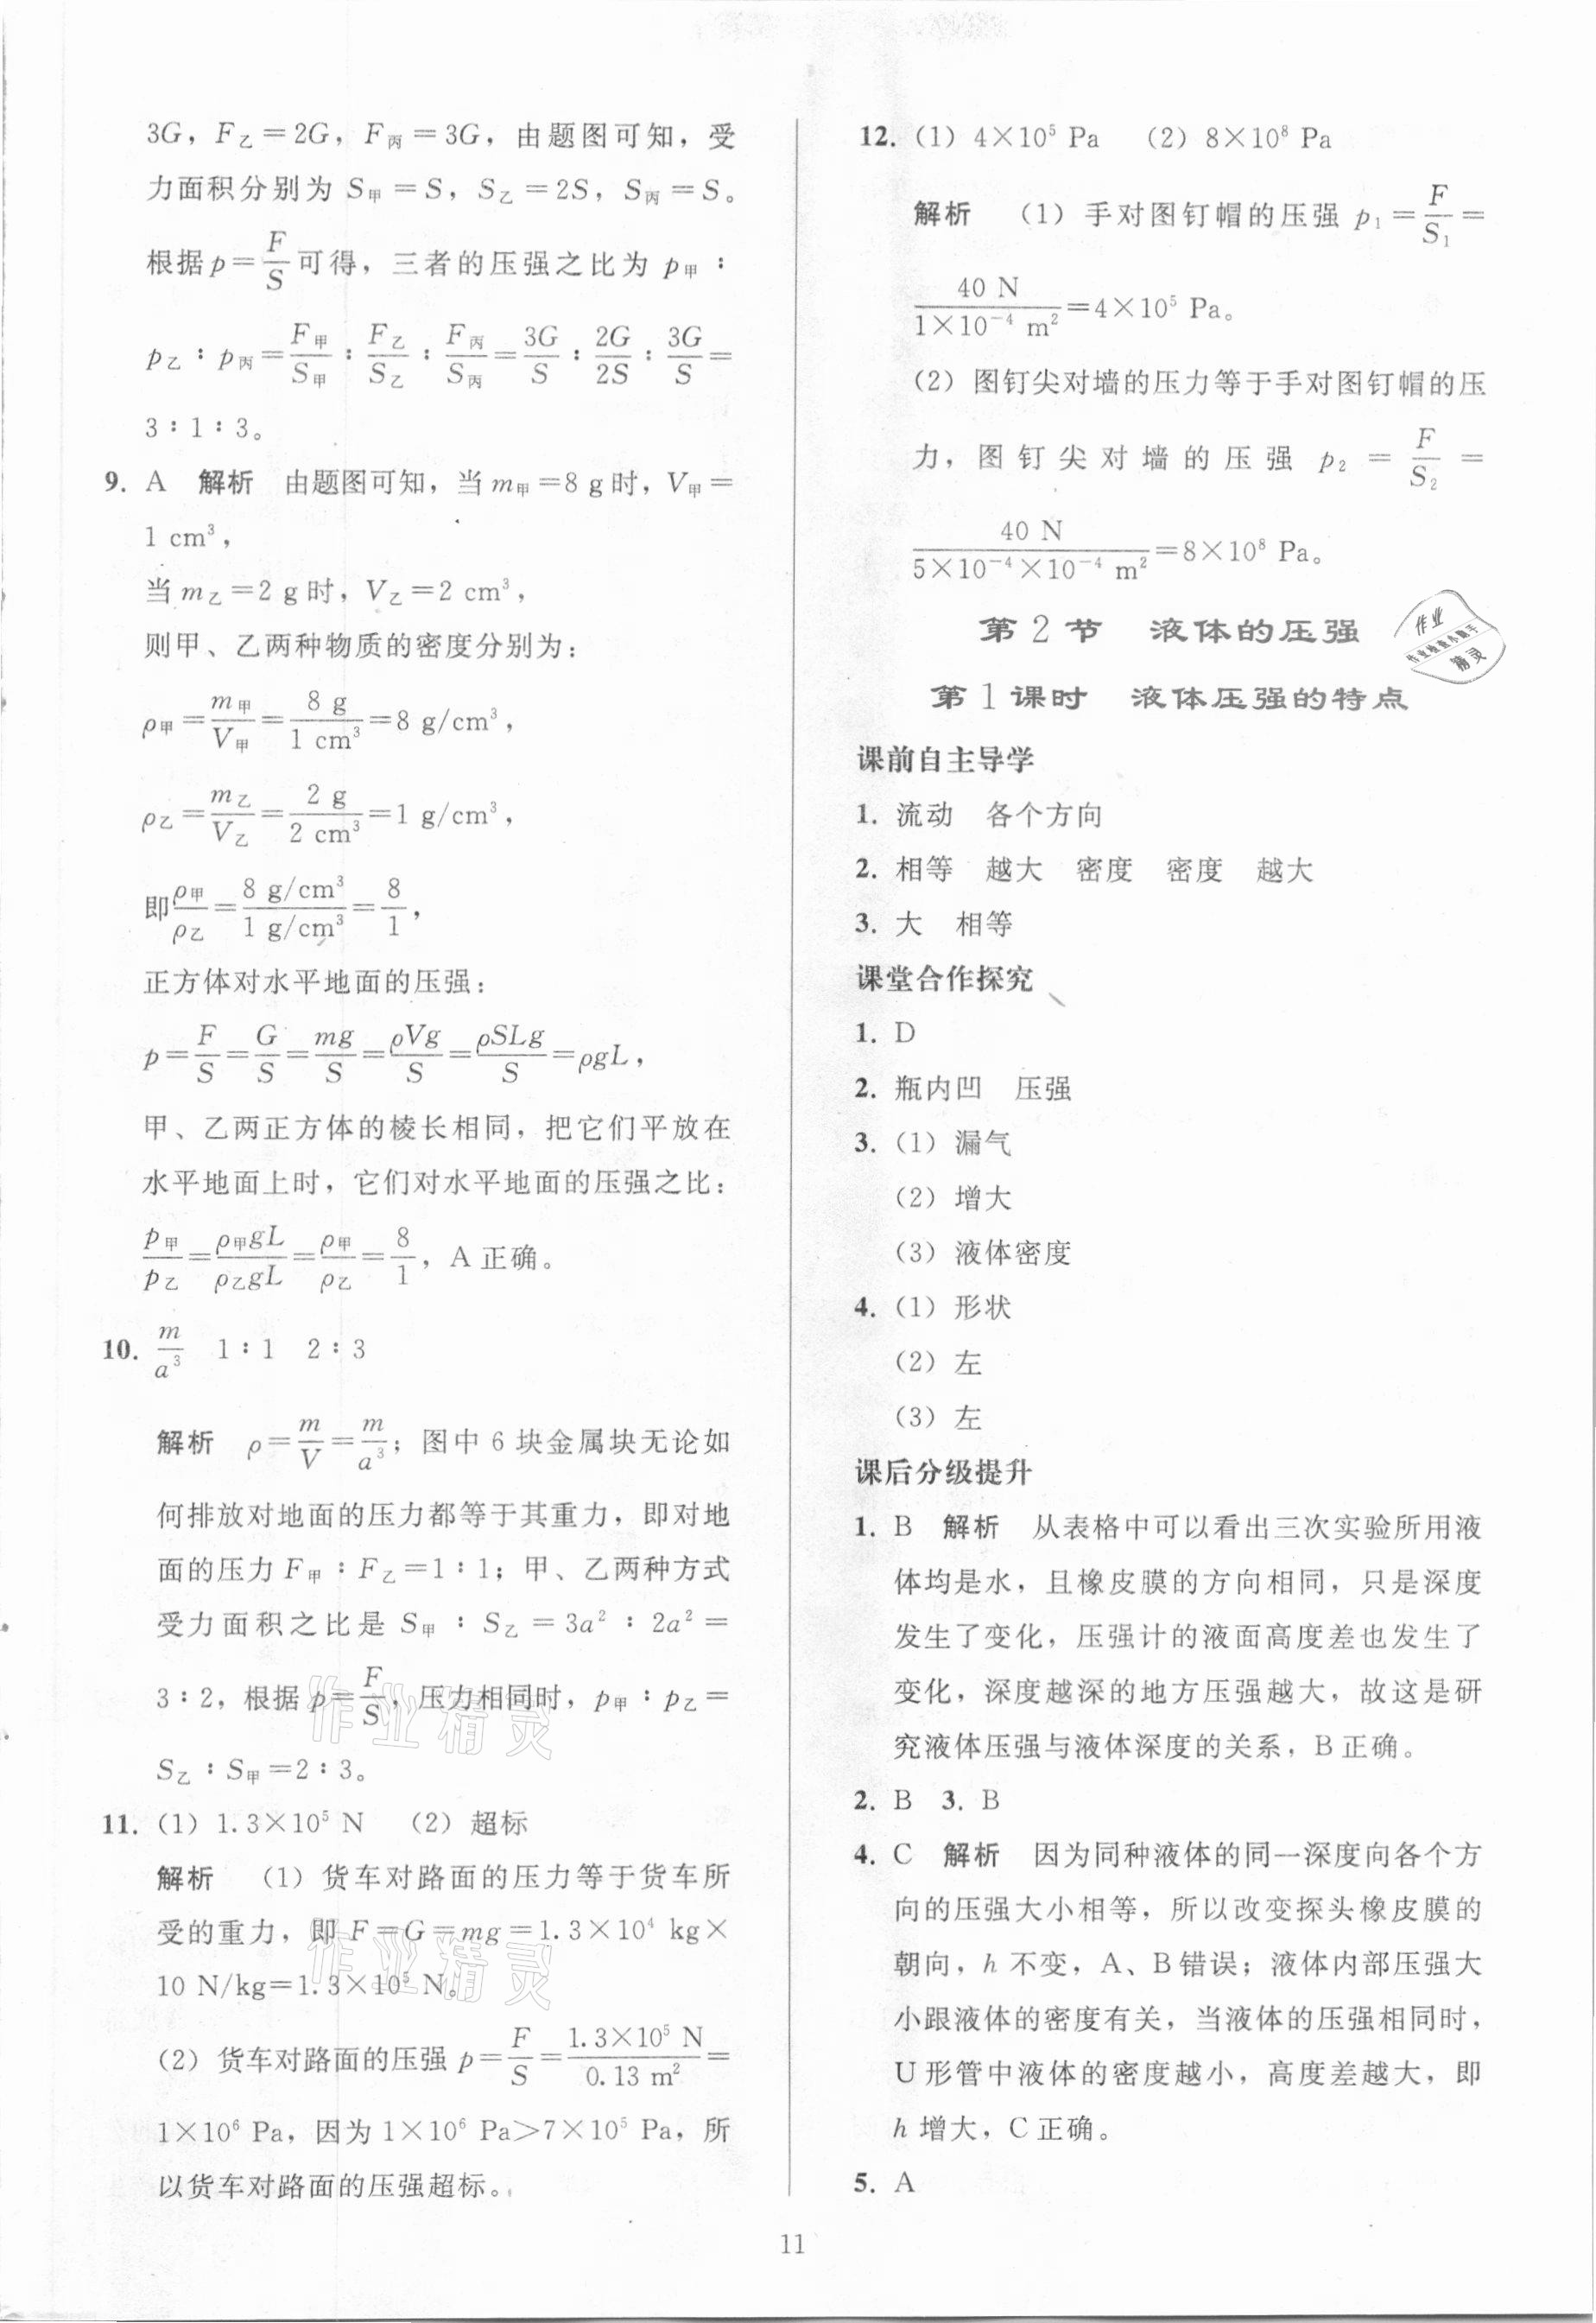 3G，F乙＝2G，F丙＝3G，由题图可知，受
力面积分别为 S甲＝S，S乙＝2S，S丙＝S。
根据p＝F/S可得，三者的压强之比为 p甲：
p乙：p丙＝F甲/S甲：F乙/S乙：F丙/S丙＝3G/S：2G/2S：3G/S＝
3：1：3。
9. A 解析 由题图可知，当m甲＝8 g时，V甲＝
1 cm³，
当m乙＝2 g时，V乙＝2 cm³，
则甲、乙两种物质的密度分别为：
ρ甲＝m甲/V甲＝8 g/1 cm³＝8 g/cm³，
ρ乙＝m乙/V乙＝2 g/2 cm³＝1 g/cm³，
即ρ甲/ρ乙＝8 g/cm³/1 g/cm³＝8/1，
正方体对水平地面的压强：
p＝F/S＝G/S＝mg/S＝ρVg/S＝ρSLg/S＝ρgL，
甲、乙两正方体的棱长相同，把它们平放在
水平地面上时，它们对水平地面的压强之比：
p甲/p乙＝ρ甲gL/ρ乙gL＝ρ甲/ρ乙＝8/1，A正确。
10. m/a³ 1：1 2：3
解析 ρ＝m/V＝m/a³；图中6块金属块无论如
何排放对地面的压力都等于其重力，即对地
面的压力F甲：F乙＝1：1；甲、乙两种方式
受力面积之比是 S甲：S乙＝3a²：2a²＝
3：2，根据p＝F/S，压力相同时，p甲：p乙＝
S乙：S甲＝2：3。
11. (1) 1.3×10⁵ N (2) 超标
解析 (1) 货车对路面的压力等于货车所
受的重力，即F＝G＝mg＝1.3×10⁴ kg×
10 N/kg＝1.3×10⁵ N。
(2) 货车对路面的压强p＝F/S＝1.3×10⁵ N/0.13 m²＝
1×10⁶ Pa，因为1×10⁶ Pa＞7×10⁵ Pa，所
以货车对路面的压强超标。
12. (1) 4×10⁵ Pa (2) 8×10⁸ Pa
解析 (1) 手对图钉帽的压强 p₁＝F/S₁＝
40 N/1×10⁻⁴ m²＝4×10⁵ Pa。
(2) 图钉尖对墙的压力等于手对图钉帽的压
力，图钉尖对墙的压强 p₂＝F/S₂＝
40 N/5×10⁻⁴×10⁻⁴ m²＝8×10⁸ Pa。
第2节 液体的压强
第1课时 液体压强的特点
作业
作业检查小助手
精灵
课前自主导学
1. 流动 各个方向
2. 相等 越大 密度 密度 越大
3. 大 相等
课堂合作探究
1. D
2. 瓶内凹 压强
3. (1) 漏气
(2) 增大
(3) 液体密度
4. (1) 形状
(2) 左
(3) 左
课后分级提升
1. B 解析 从表格中可以看出三次实验所用液
体均是水，且橡皮膜的方向相同，只是深度
发生了变化，压强计的液面高度差也发生了
变化，深度越深的地方压强越大，故这是研
究液体压强与液体深度的关系，B正确。
2. B 3. B
4. C 解析 因为同种液体的同一深度向各个方
向的压强大小相等，所以改变探头橡皮膜的
朝向，h不变，A、B错误；液体内部压强大
小跟液体的密度有关，当液体的压强相同时，
U形管中液体的密度越小，高度差越大，即
h增大，C正确。
5. A
作业精灵
作业精灵
11